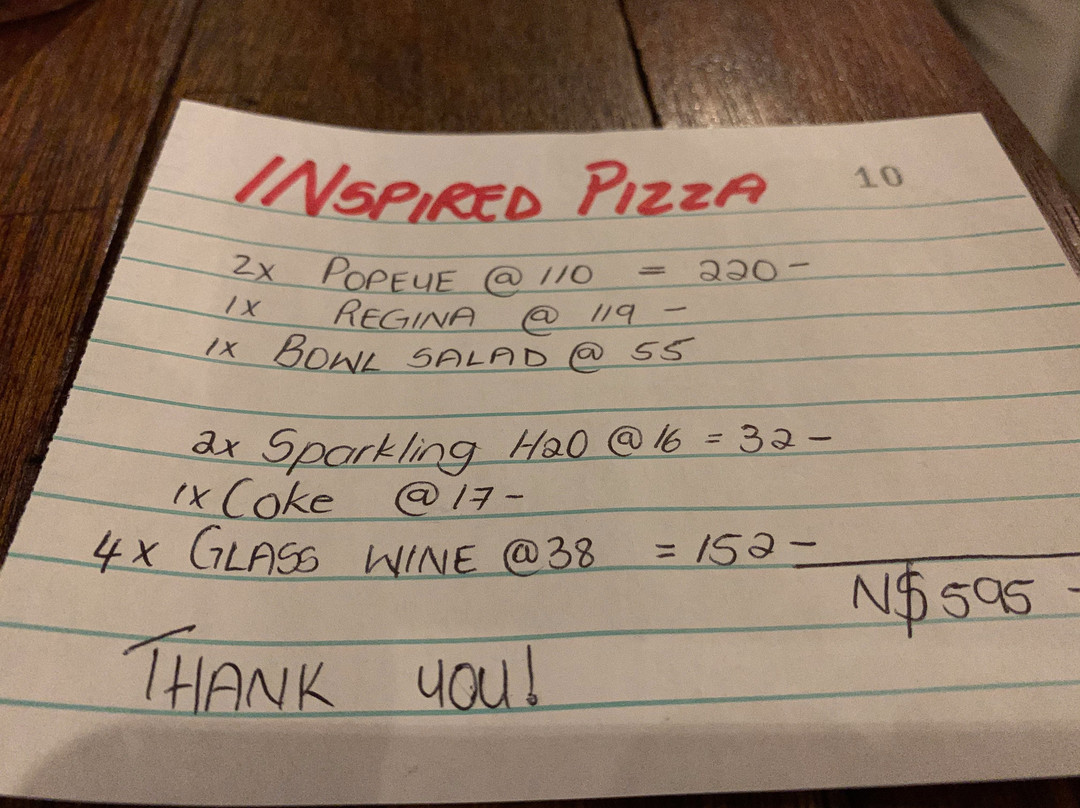 INSPIRED PIZZA 10
2x POPEYE @ 110 = 220-
1x REGINA @ 119 -
1x BOWL SALAD @ 55
2x Sparkling H2O @ 16 = 32-
1x Coke @ 17-
4x GLASS WINE @38 = 152-
N$ 595-
THANK YOU!